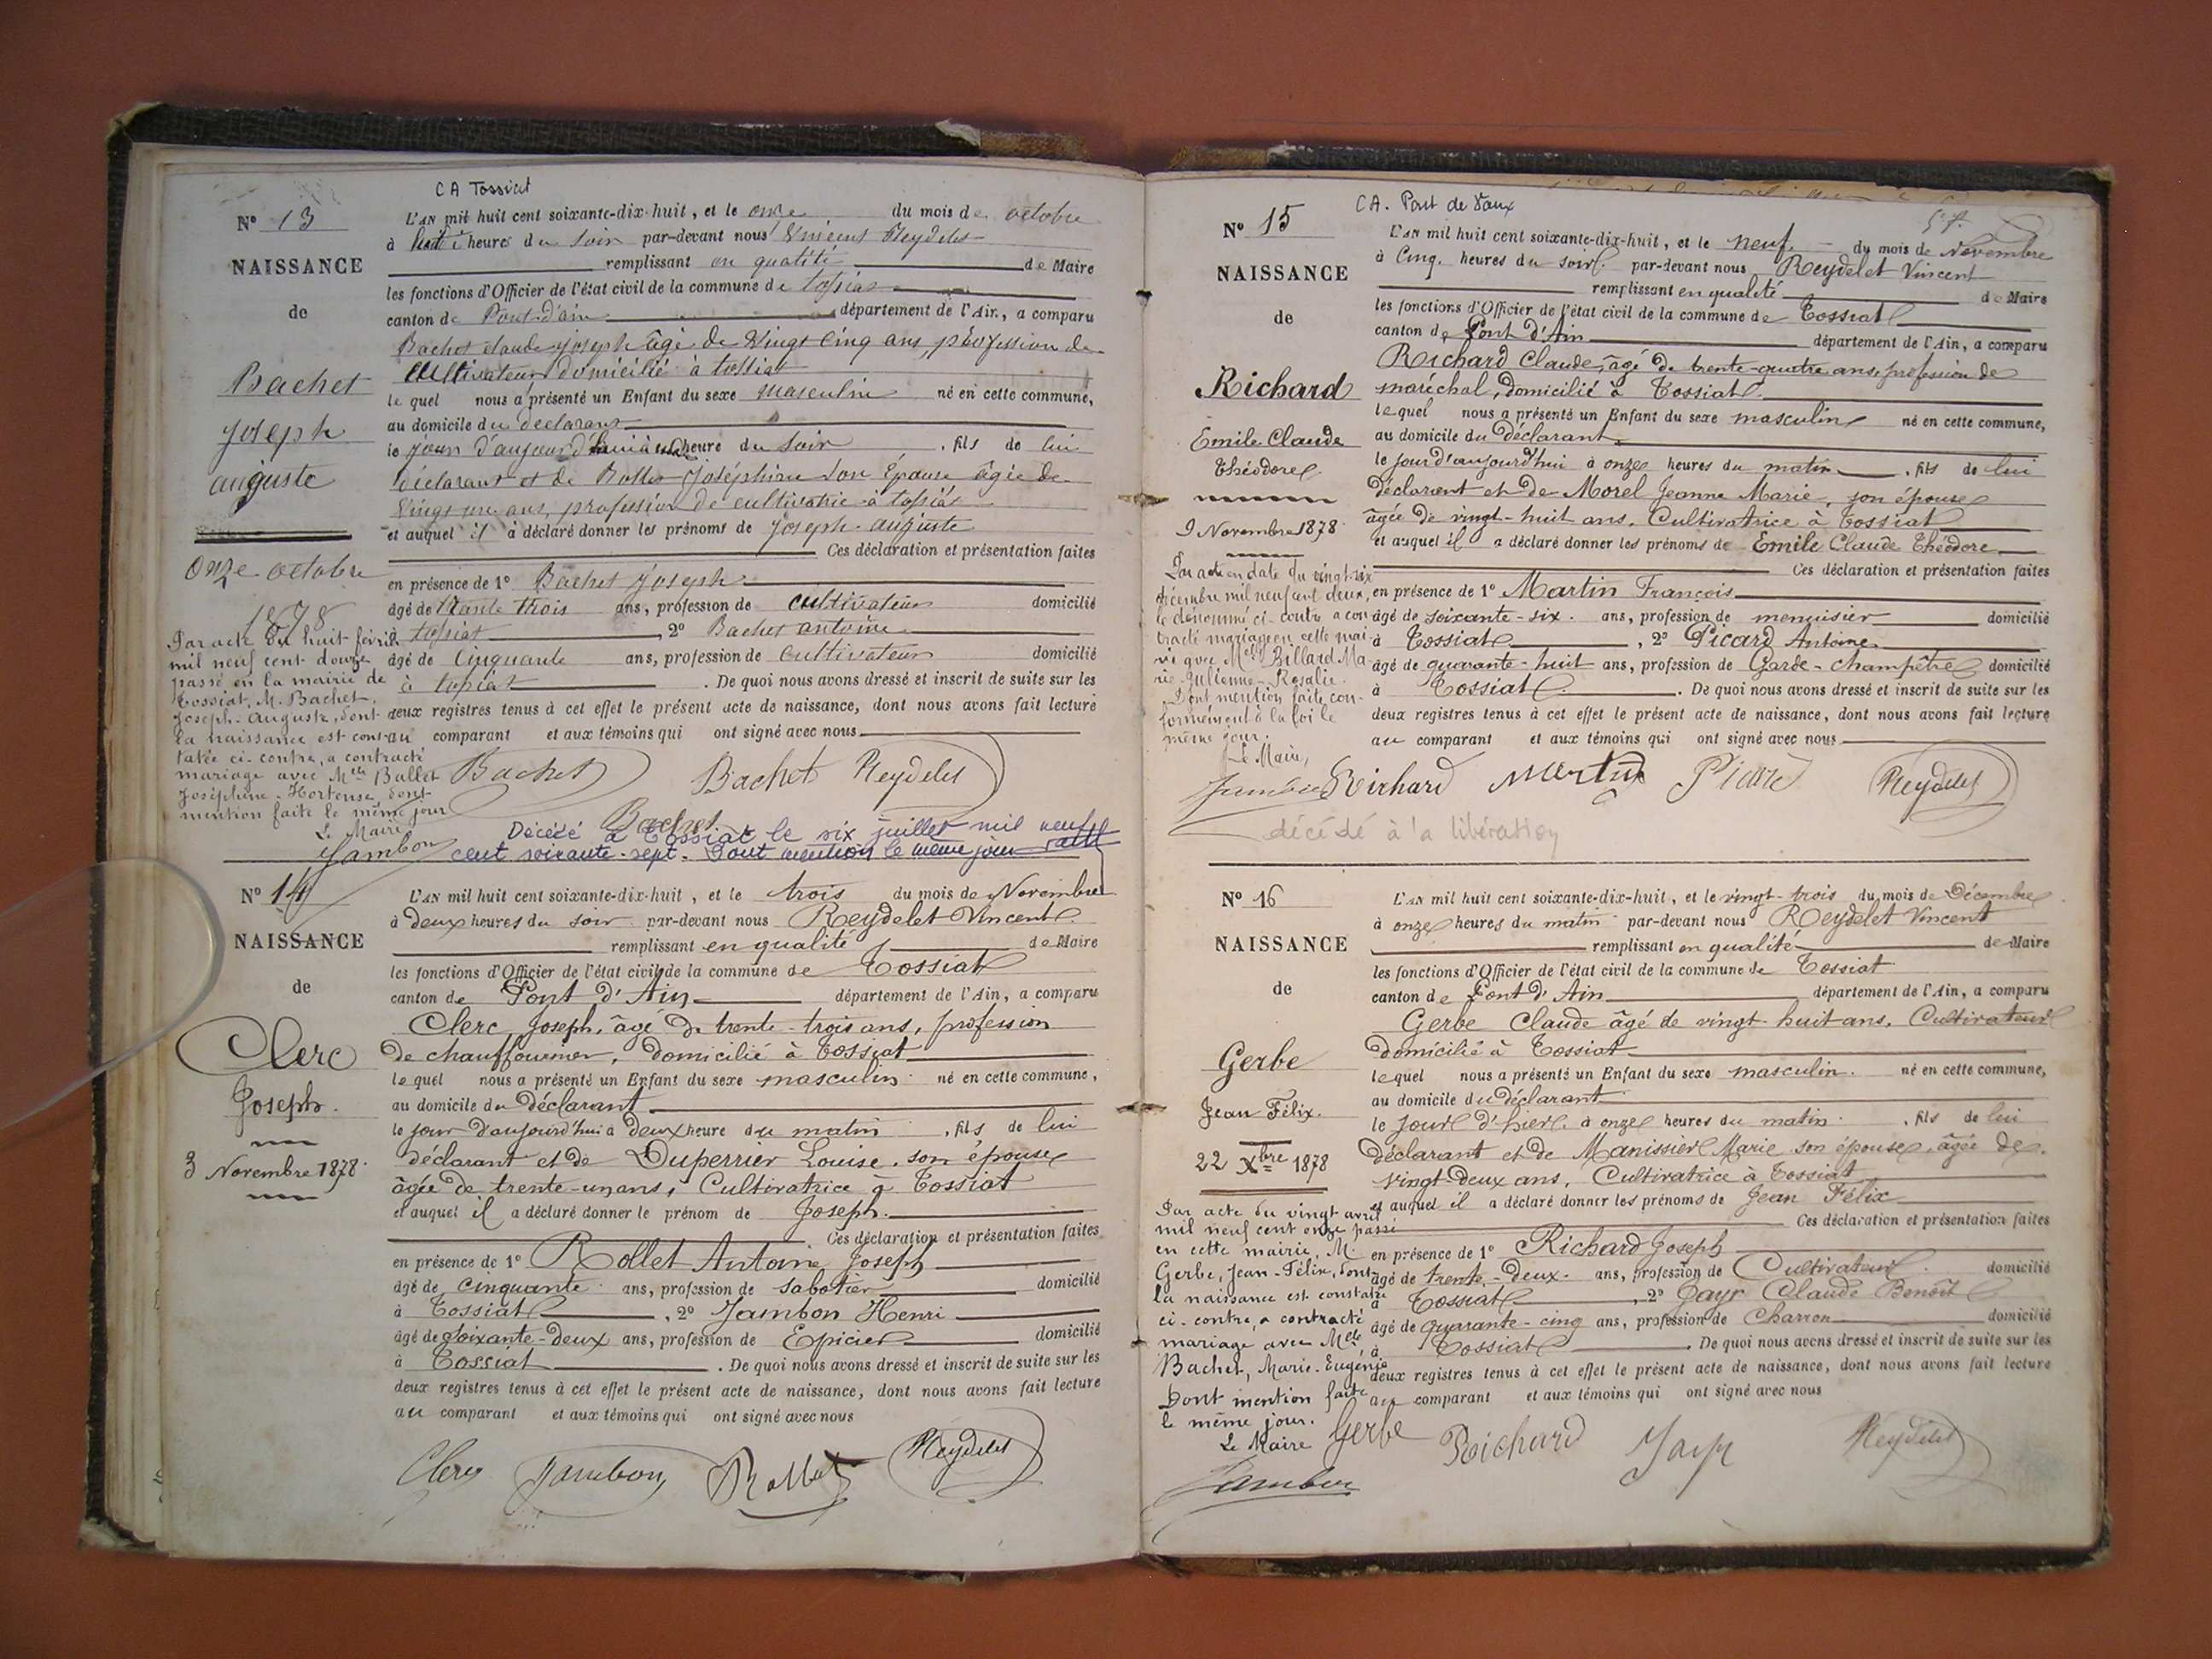 CA Tossiat
N° 13
NAISSANCE
de
Bachet
Joseph
auguste
onze octobre
1878
L'AN mil huit cent soixante-dix-huit, et le onze du mois de octobre
à heures du soir par-devant nous Vincent Reydelet
remplissant en qualité de Maire
les fonctions d'Officier de l'état civil de la commune de tossiat
canton de Pont d'ain département de l'Ain, a comparu
Bachet claude joseph âgé de Vingt cinq ans, profession de
cultivateur domicilié à tossiat
lequel nous a présenté un Enfant du sexe masculin né en cette commune,
au domicile du déclarant
le jour d'aujourd'hui à heure du soir, fils de lui
déclarant et de Joséphine son épouse âgée de
Vingt un ans, profession de cultivatrice à tossiat
et auquel il à déclaré donner les prénoms de Joseph auguste
Ces déclaration et présentation faites
en présence de 1° Bachet joseph
âgé de trante trois ans, profession de cultivateur domicilié
à tossiat, 2° Bachet antoine
âgé de cinquante ans, profession de cultivateur domicilié
à tossiat. De quoi nous avons dressé et inscrit de suite sur les
deux registres tenus à cet effet le présent acte de naissance, dont nous avons fait lecture
au comparant et aux témoins qui ont signé avec nous
Par acte du huit février
mil neuf cent douze
passé en la mairie de
Tossiat, M. Bachet,
Joseph-Auguste, dont
la naissance est cons-
tatée ci-contre, a contracté
mariage avec Melle Ballet
Joséphine-Hortense, dont
mention faite le même jour
Le Maire
Jambon
Bachet Bachet Reydelet
Bachet
Décédé à Tossiat le six juillet mil neuf
cent soixante-sept. Dont mention le même jour
N° 14
NAISSANCE
de
Clerc
Joseph.
3 Novembre 1878.
L'AN mil huit cent soixante-dix-huit, et le trois du mois de Novembre
à deux heures du soir par-devant nous Reydelet Vincent
remplissant en qualité de Maire
les fonctions d'Officier de l'état civil de la commune de Tossiat
canton de Pont d'Ain département de l'Ain, a comparu
Clerc Joseph, âgé de trente-trois ans, profession
de chauffournier, domicilié à Tossiat
lequel nous a présenté un Enfant du sexe masculin né en cette commune,
au domicile du déclarant
le jour d'aujourd'hui à deux heure du matin, fils de lui
déclarant et de Duperrier Louise, son épouse
âgée de trente-un ans, Cultivatrice à Tossiat
et auquel il a déclaré donner le prénom de Joseph.
Ces déclaration et présentation faites
en présence de 1° Rollet Antoine Joseph
âgé de cinquante ans, profession de sabotier domicilié
à Tossiat, 2° Jambon Henri
âgé de soixante-deux ans, profession de Epicier domicilié
à Tossiat. De quoi nous avons dressé et inscrit de suite sur les
deux registres tenus à cet effet le présent acte de naissance, dont nous avons fait lecture
au comparant et aux témoins qui ont signé avec nous
Clerc Jambon Rollet Reydelet
CA. Pont de Vaux
N° 15
NAISSANCE
de
Richard
Emile Claude
Théodore.
9 Novembre 1878.
L'AN mil huit cent soixante-dix-huit, et le neuf du mois de Novembre
à Cinq heures du soir par-devant nous Reydelet Vincent
remplissant en qualité de Maire
les fonctions d'Officier de l'état civil de la commune de Tossiat
canton de Pont d'Ain département de l'Ain, a comparu
Richard Claude, âgé de trente-quatre ans, profession de
maréchal, domicilié à Tossiat
lequel nous a présenté un Enfant du sexe masculin né en cette commune,
au domicile du déclarant
le jour d'aujourd'hui à onze heures du matin, fils de lui
déclarant et de Morel Jeanne Marie, son épouse
âgée de vingt-huit ans, Cultivatrice à Tossiat
et auquel il a déclaré donner les prénoms de Emile Claude Théodore
Ces déclaration et présentation faites
en présence de 1° Martin François
âgé de soixante-six ans, profession de menuisier domicilié
à Tossiat, 2° Picard Antoine
âgé de quarante-huit ans, profession de Garde-champêtre domicilié
à Tossiat. De quoi nous avons dressé et inscrit de suite sur les
deux registres tenus à cet effet le présent acte de naissance, dont nous avons fait lecture
au comparant et aux témoins qui ont signé avec nous
Par acte en date du vingt-six
décembre mil neuf cent deux,
le dénommé ci-contre a con-
tracté mariage en cette mai-
rie avec Melle Billard Ma-
rie-Julienne-Rosalie.
Dont mention faite con-
formément à la loi le
même jour.
Le Maire,
Jambon Richard Martin Picard Reydelet
décédé à la libération
N° 16
NAISSANCE
de
Gerbe
Jean Félix.
22 Xbre 1878
L'AN mil huit cent soixante-dix-huit, et le vingt-trois du mois de Décembre
à onze heures du matin par-devant nous Reydelet Vincent
remplissant en qualité de Maire
les fonctions d'Officier de l'état civil de la commune de Tossiat
canton de Pont d'Ain département de l'Ain, a comparu
Gerbe Claude âgé de vingt-huit ans, Cultivateur
domicilié à Tossiat
lequel nous a présenté un Enfant du sexe masculin. né en cette commune,
au domicile du déclarant
le jour d'hier à onze heures du matin, fils de lui
déclarant et de Manissier Marie son épouse, âgée de
vingt-deux ans, Cultivatrice à Tossiat
et auquel il a déclaré donner les prénoms de Jean Félix
Ces déclaration et présentation faites
en présence de 1° Richard Joseph
âgé de trente-deux ans, profession de Cultivateur domicilié
à Tossiat, 2° Jayr Claude Benoît
âgé de quarante-cinq ans, profession de Charron domicilié
à Tossiat. De quoi nous avons dressé et inscrit de suite sur les
deux registres tenus à cet effet le présent acte de naissance, dont nous avons fait lecture
au comparant et aux témoins qui ont signé avec nous
Par acte du vingt avril
mil neuf cent onze passé
en cette mairie, M.
Gerbe, Jean-Félix, dont
la naissance est constatée
ci-contre, a contracté
mariage avec Melle
Bachet, Marie-Eugénie
Dont mention faite
le même jour.
Le Maire
Jambon
Gerbe Richard Jayr Reydelet